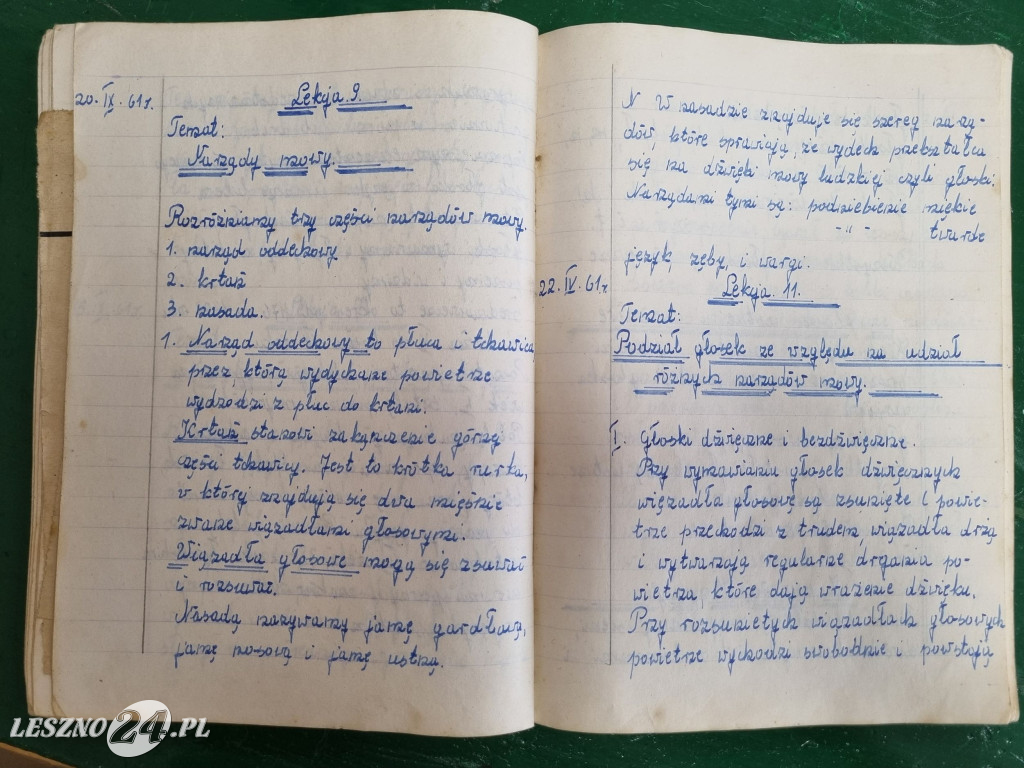 20. IX. 61 r.
Lekcja 9.
Temat:
Narządy mowy.
Rozróżniamy trzy części narządów mowy.
1. narząd oddechowy
2. krtań
3. nasada.
1. Narząd oddechowy to płuca i tchawica,
przez, którą wydychane powietrze
wychodzi z płuc do krtani.
Krtań stanowi zakończenie górnej
części tchawicy. Jest to krótka rurka,
w której znajdują się dwa mięśnie
zwane wiązadłami głosowymi.
Wiązadła głosowe mogą się zsuwać
i rozsuwać.
Nasadą nazywamy jamę gardłową,
jamę nosową i jamę ustną.
N W nasadzie znajduje się szereg narzą-
dów, które sprawiają, że wydech przekształca
się na dźwięki mowy ludzkiej czyli głoski.
Narządami tymi są: podniebienie miękie
-"- twarde
język, zęby, i wargi.
22. IX. 61 r.
Lekcja 11.
Temat:
Podział głosek ze względu na udział
różnych narządów mowy.
I. Głoski dźwięczne i bezdźwięczne.
Przy wymawianiu głosek dźwięcznych
więzadła głosowe są zsunięte i powie-
trze przechodzi z trudem, wiązadła drżą
i wytwarzają regularne drgania po-
wietrza, które dają wrażenie dźwięku.
Przy rozsuniętych wiązadłach głosowych
powietrze wychodzi swobodnie i powstają
LESZNO24.PL